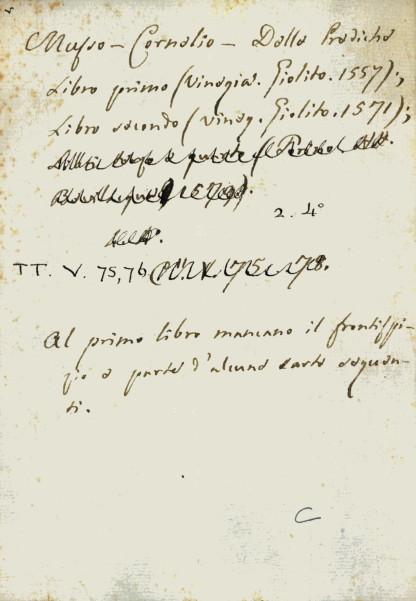 Musso - Cornelio - Delle Prediche
Libro primo (Vinegia. Giolito. 1557).,
Libro secondo (Vineg. Giolito. 1571);
2. 4°
TT. V. 75, 76
Al primo libro mancano il frontispi-
zio e parte d'alcune carte seguen-
ti.
C